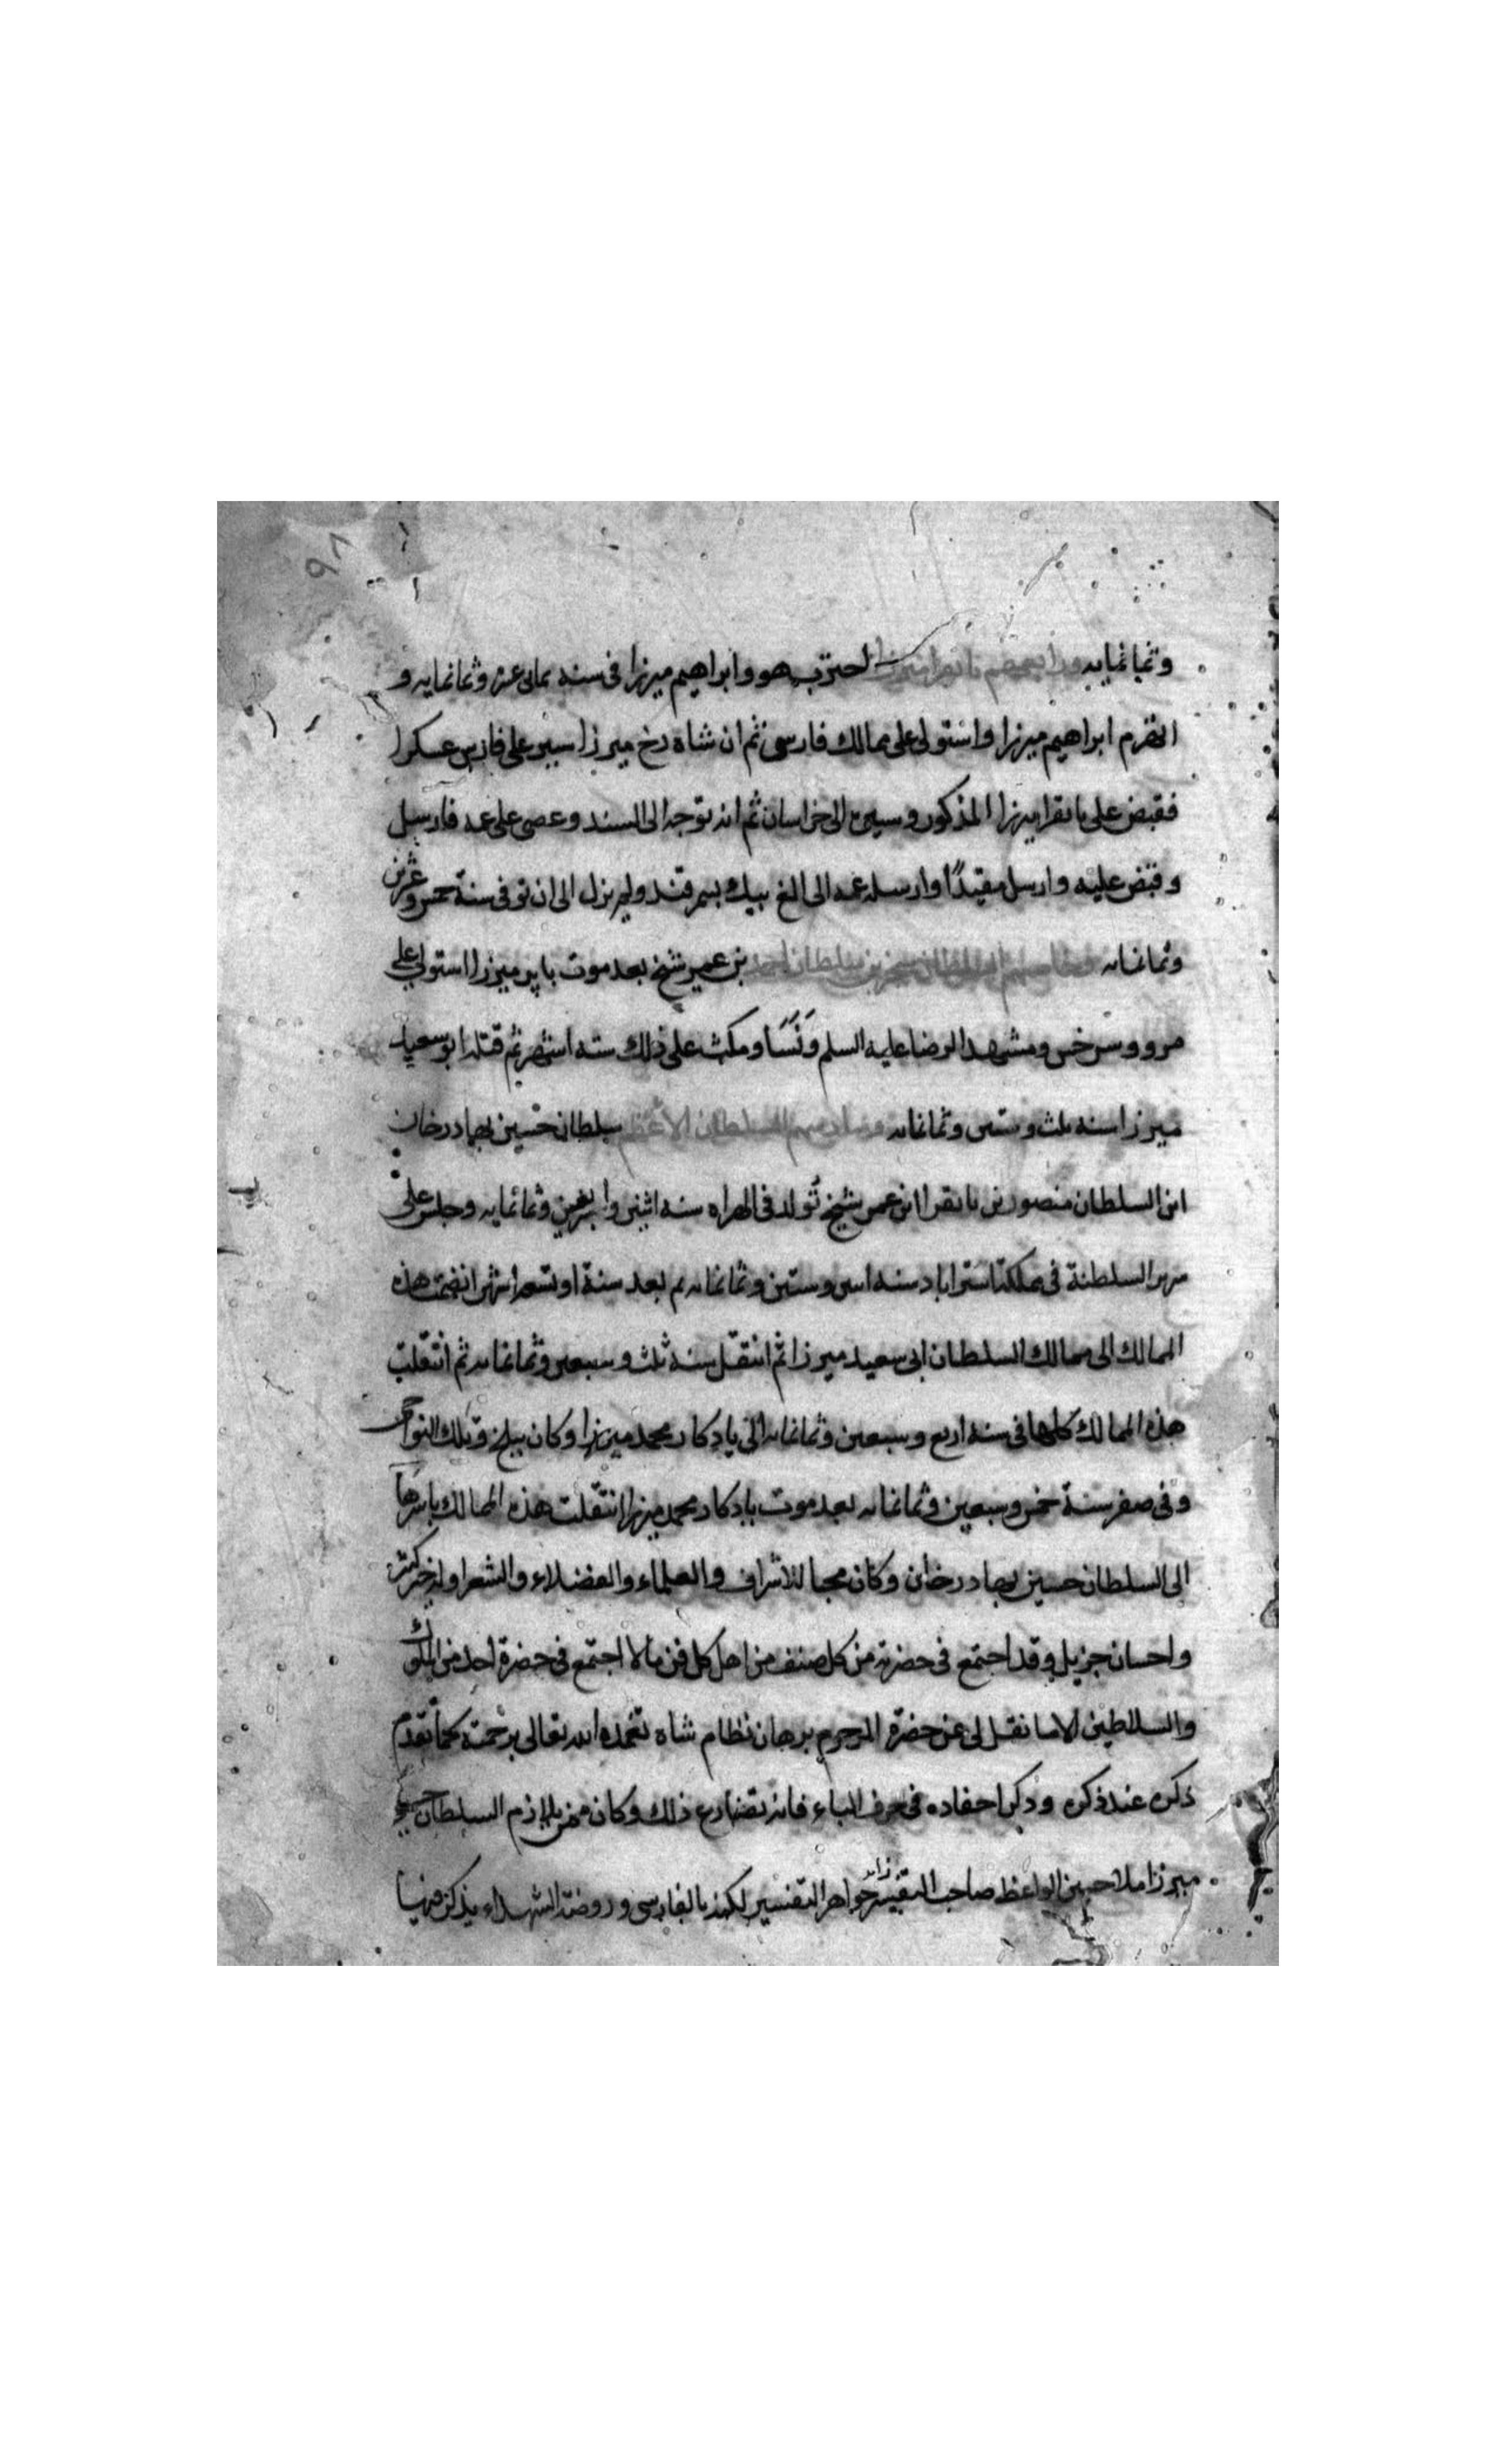 ٩٨
وثمانمايه ورابعهم بايقرا ميرزا احترب هو وابراهيم ميرزا فى سنه ثمانى عشر وثمانمايه و
انهزم ابراهيم ميرزا واستولى على ممالك فارس ثم ان شاه رخ ميرزا سير على فارس عسكرا
فقبض على بايقرا ميرزا المذكور وسيره الى خراسان ثم انه توجه الى السند وعصى على عمه فارسل
وقبض عليه وارسل مقيدًا وارسله عمه الى الغ بيك بسمرقند ولم يزل الى ان توفى سنة خمس وعشرين
وثمانمايه وخامسهم السلطان سنجر بن سلطان احمد بن عمر شيخ بعد موت بابر ميرزا استولى على
مرو وسرخس ومشهد الرضا عليه السلم ونَسَا ومكث على ذلك سته اشهر ثم قتله ابو سعيد
ميرزا سنه ثلث وستين وثمانمايه وسادسهم السلطان الاعظم سلطان حسين بهادر خان
ابن السلطان منصور بن بايقرا ابن عمر شيخ تولد فى الهراه سنه اثنى واربعين وثمانمايه وجلس على
سرير السلطنة فى مملكة استراباد سنه اثنى وستين وثمانمايه ثم بعد سنة او تسعه اشهر انضمت هذه
الممالك الى ممالك السلطان ابى سعيد ميرزا ثم انتقل سنه ثلث وسبعين وثمانمايه ثم انتقلت
هذه الممالك كلها فى سنه اربع وسبعين وثمانمايه الى يادكار محمد ميرزا وكان ببلخ وتلك النواحى
وفى صفر سنة خمس وسبعين وثمانمايه بعد موت يادكار محمد ميرزا انتقلت هذه الممالك باسرها
الى السلطان حسين بهادر خان وكان محبا للاشراف والعلماء والفضلاء والشعرا كثير
واحسان جزيل وقد اجتمع فى حضرته من كل صنف من اهل كل فن ما لا اجتمع فى حضرة احد من الملوك
والسلاطين الا ما نقل لى عن حضرة المرحوم برهان نظام شاه تغمده الله تعالى برحمته كما تقدم
ذكره عند ذكره وذكر احفاده فى حرف الباء فانه ذلك وكان من يلازم السلطان حسين
ميرزا ملا حسين الواعظ صاحب التفسير جواهر التفسير لكنه بالفارسى وروضة الشهداء يذكر فيها